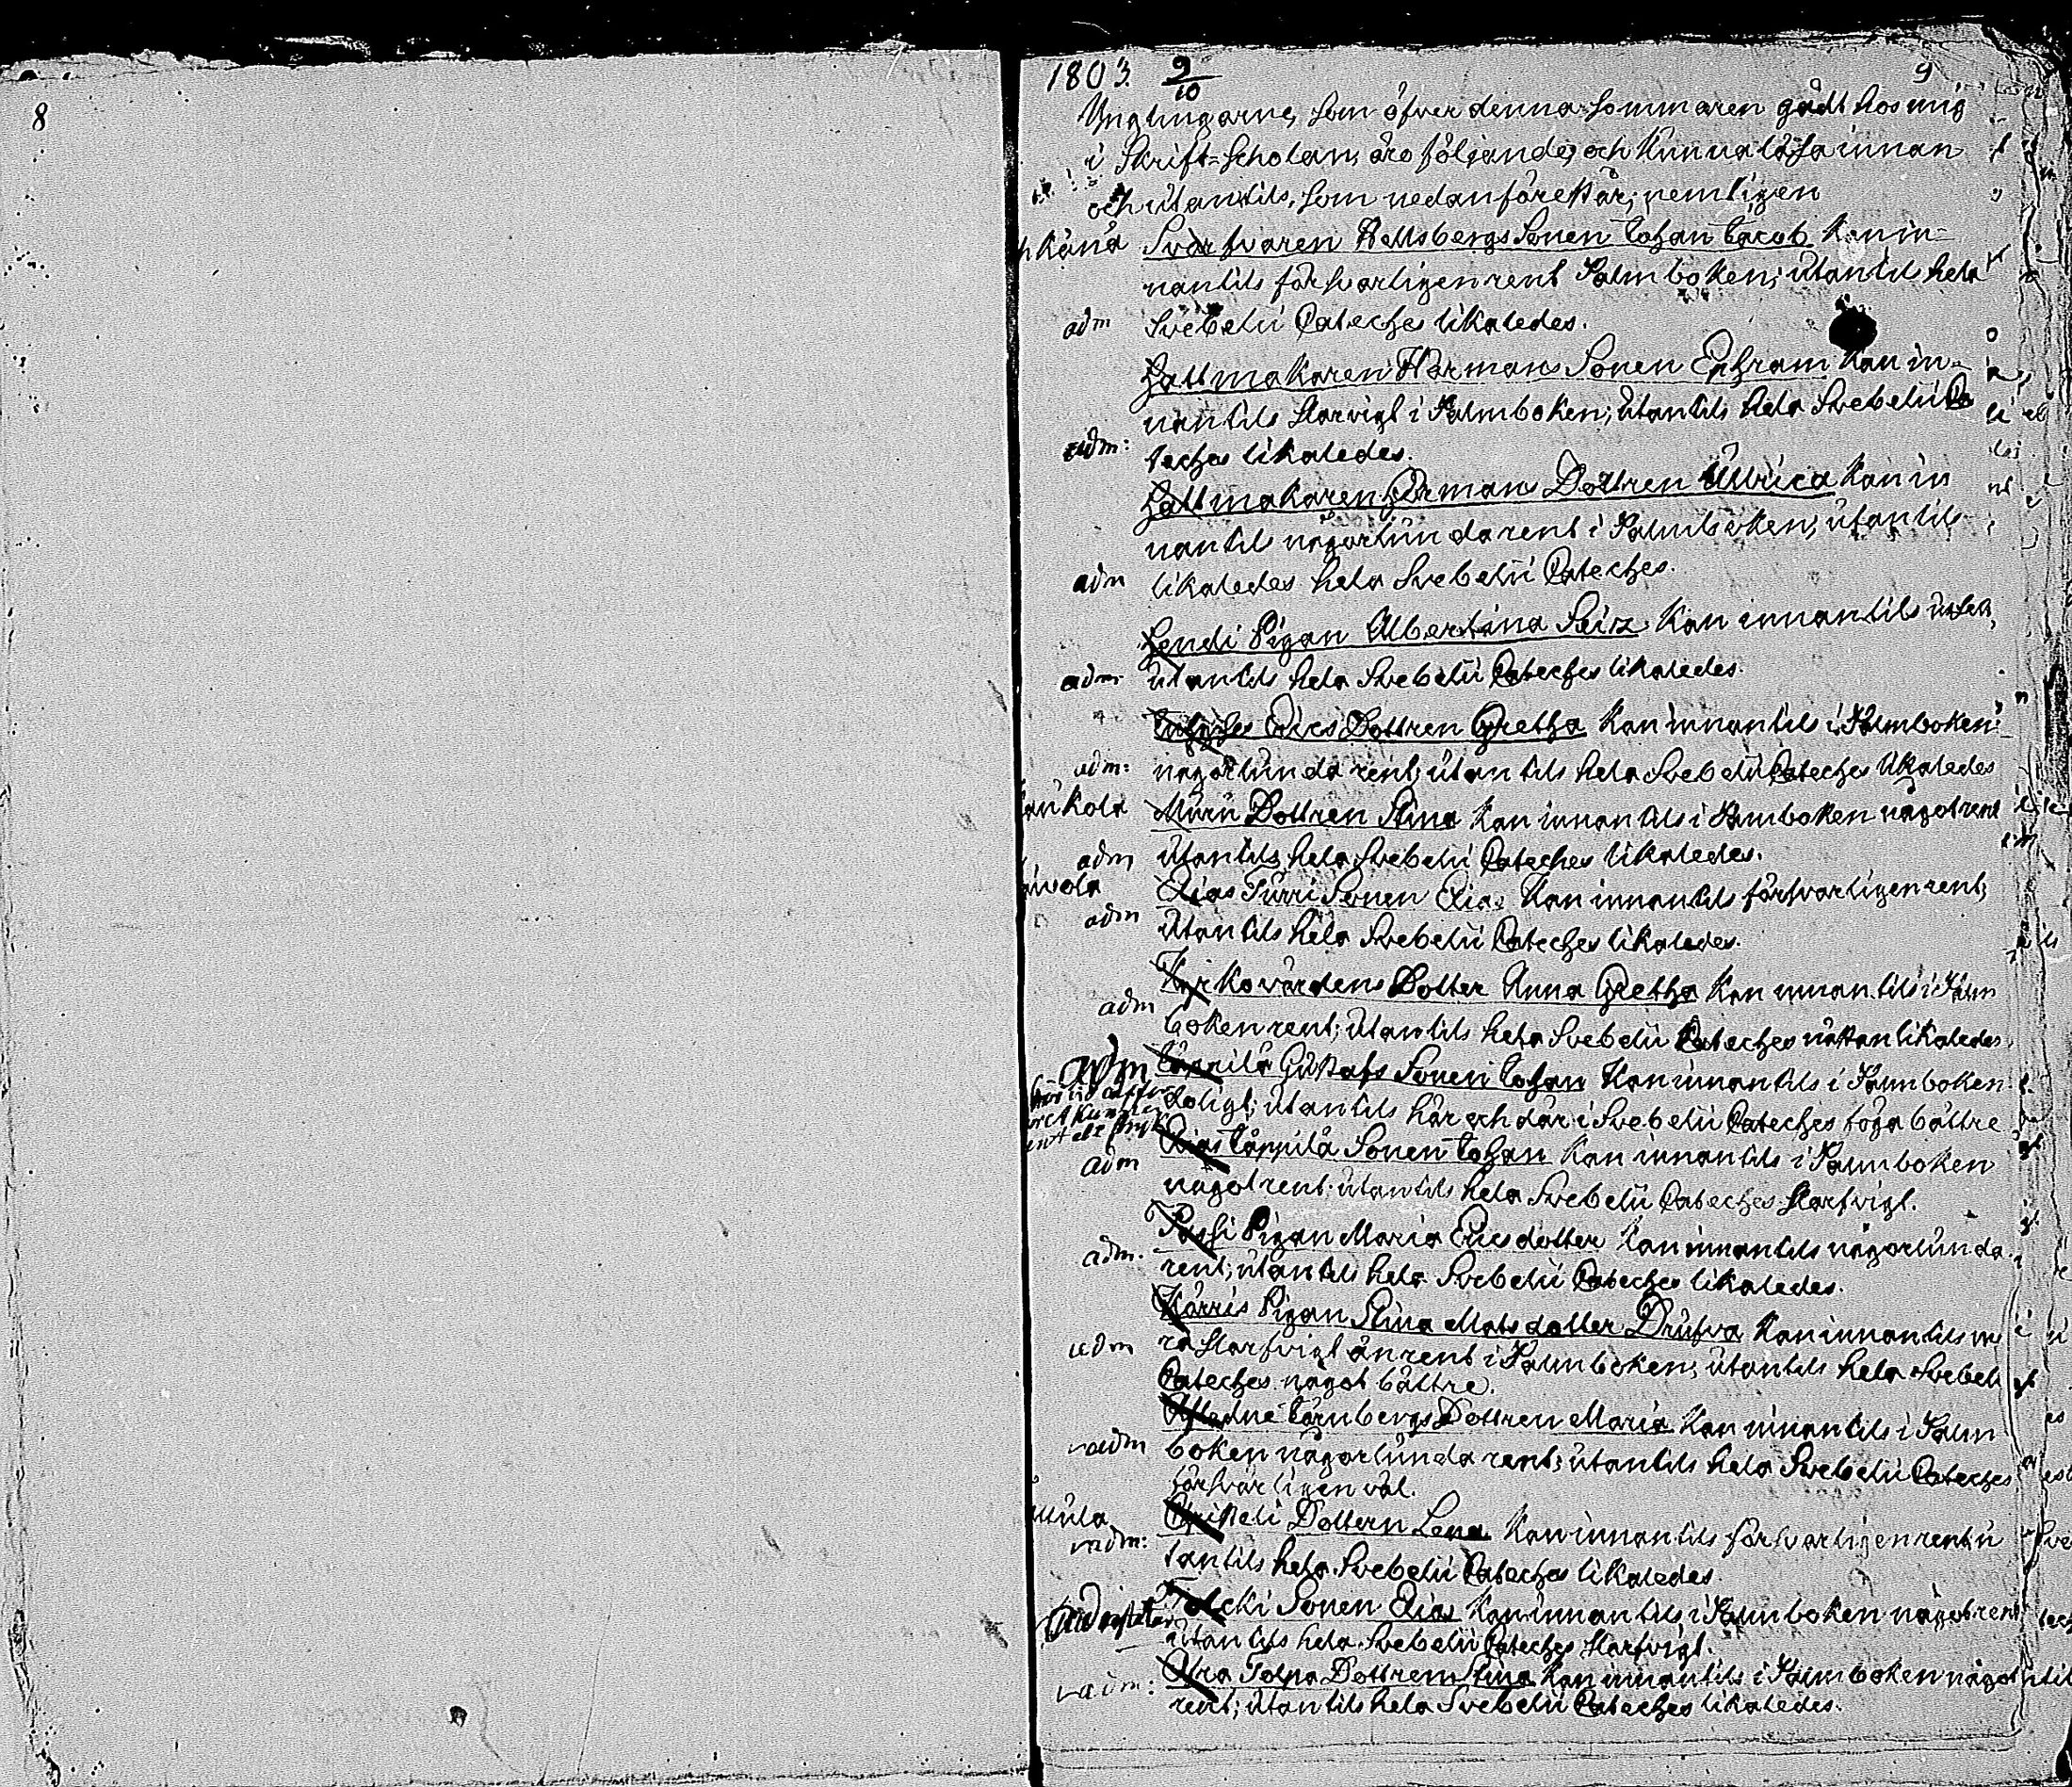 8
1803 9/10 9
Ynglingarne, som öfver denna sommaren gådt hos mig
i Skrift-Scholan, äro följande, och kunna läsa innan
och utantils, som nedanföre står; nemligen
Svarfvaren Hellsbergs Sonen Johan Jacob kan in-
nantils försvarligen rent Psalmboken; utantil hela
adm Svebelii Cateches likaledes.
Hattmakaren Hermans Sonen Ephram kan in-
nantils starvigt i Psalmboken; utantils hela Svebelii Ca
adm: teches likaledes.
Hattmakaren Hermans Dottren Ullrica kan in
nantils någorlunda rent i Psalmboken; utantils
adm likaledes hela Svebelii Cateches.
Lendi Pigan Albertina kan innantils
adm utantils hela Svebelii Cateches likaledes.
Erics Dottren Gretha kan innantils i Psalmboken
adm: någorlunda rent; utantils hela Svebelii Cateches likaledes
Muru Dottren Stina kan innantils i Psalmboken något rent
adm utantils hela Svebelii Cateches likaledes.
Elias Turri Sonen Elias kan innantils försvarligen rent;
adm utantils hela Svebelii Cateches likaledes.
Kyrkovärdens Dotter Anna Gretha kan innantils i Psalm
adm boken rent; utantils hela Svebelii Cateches nästan likaledes
adm Gustafs Sonen Johan kan innantils i Psalmboken
dåligt; utantils här och där i Svebelii Cateches föga bättre
Elias Täppilä Sonen Johan kan innantils i Psalmboken
adm något rent; utantils hela Svebelii Cateches starfvigt.
Passi Pigan Maria Ericsdotter kan innantils någorlunda
adm. rent; utantils hela Svebelii Cateches likaledes.
Kärris Pigan Stina Matsdotter Drufva kan innantils me
adm ra starfvigt än rent i Psalmboken; utantils hela Svebelii
Cateches något bättre.
Afledne Törnbergs Dottren Maria kan innantils i Psalm
adm boken någorlunda rent; utantils hela Svebelii Cateches
försvarligen väl.
Dottern Lena kan innantils försvarligen rent u
adm: tantils hela Svebelii Cateches likaledes.
Tolcki Sonen Elias kan innantils i Psalmboken något rent
utantils hela Svebelii Cateches starfvigt.
Tolpa Dottren Stina kan innantils i Psalmboken något
adm: rent; utantils hela Svebelii Cateches likaledes.